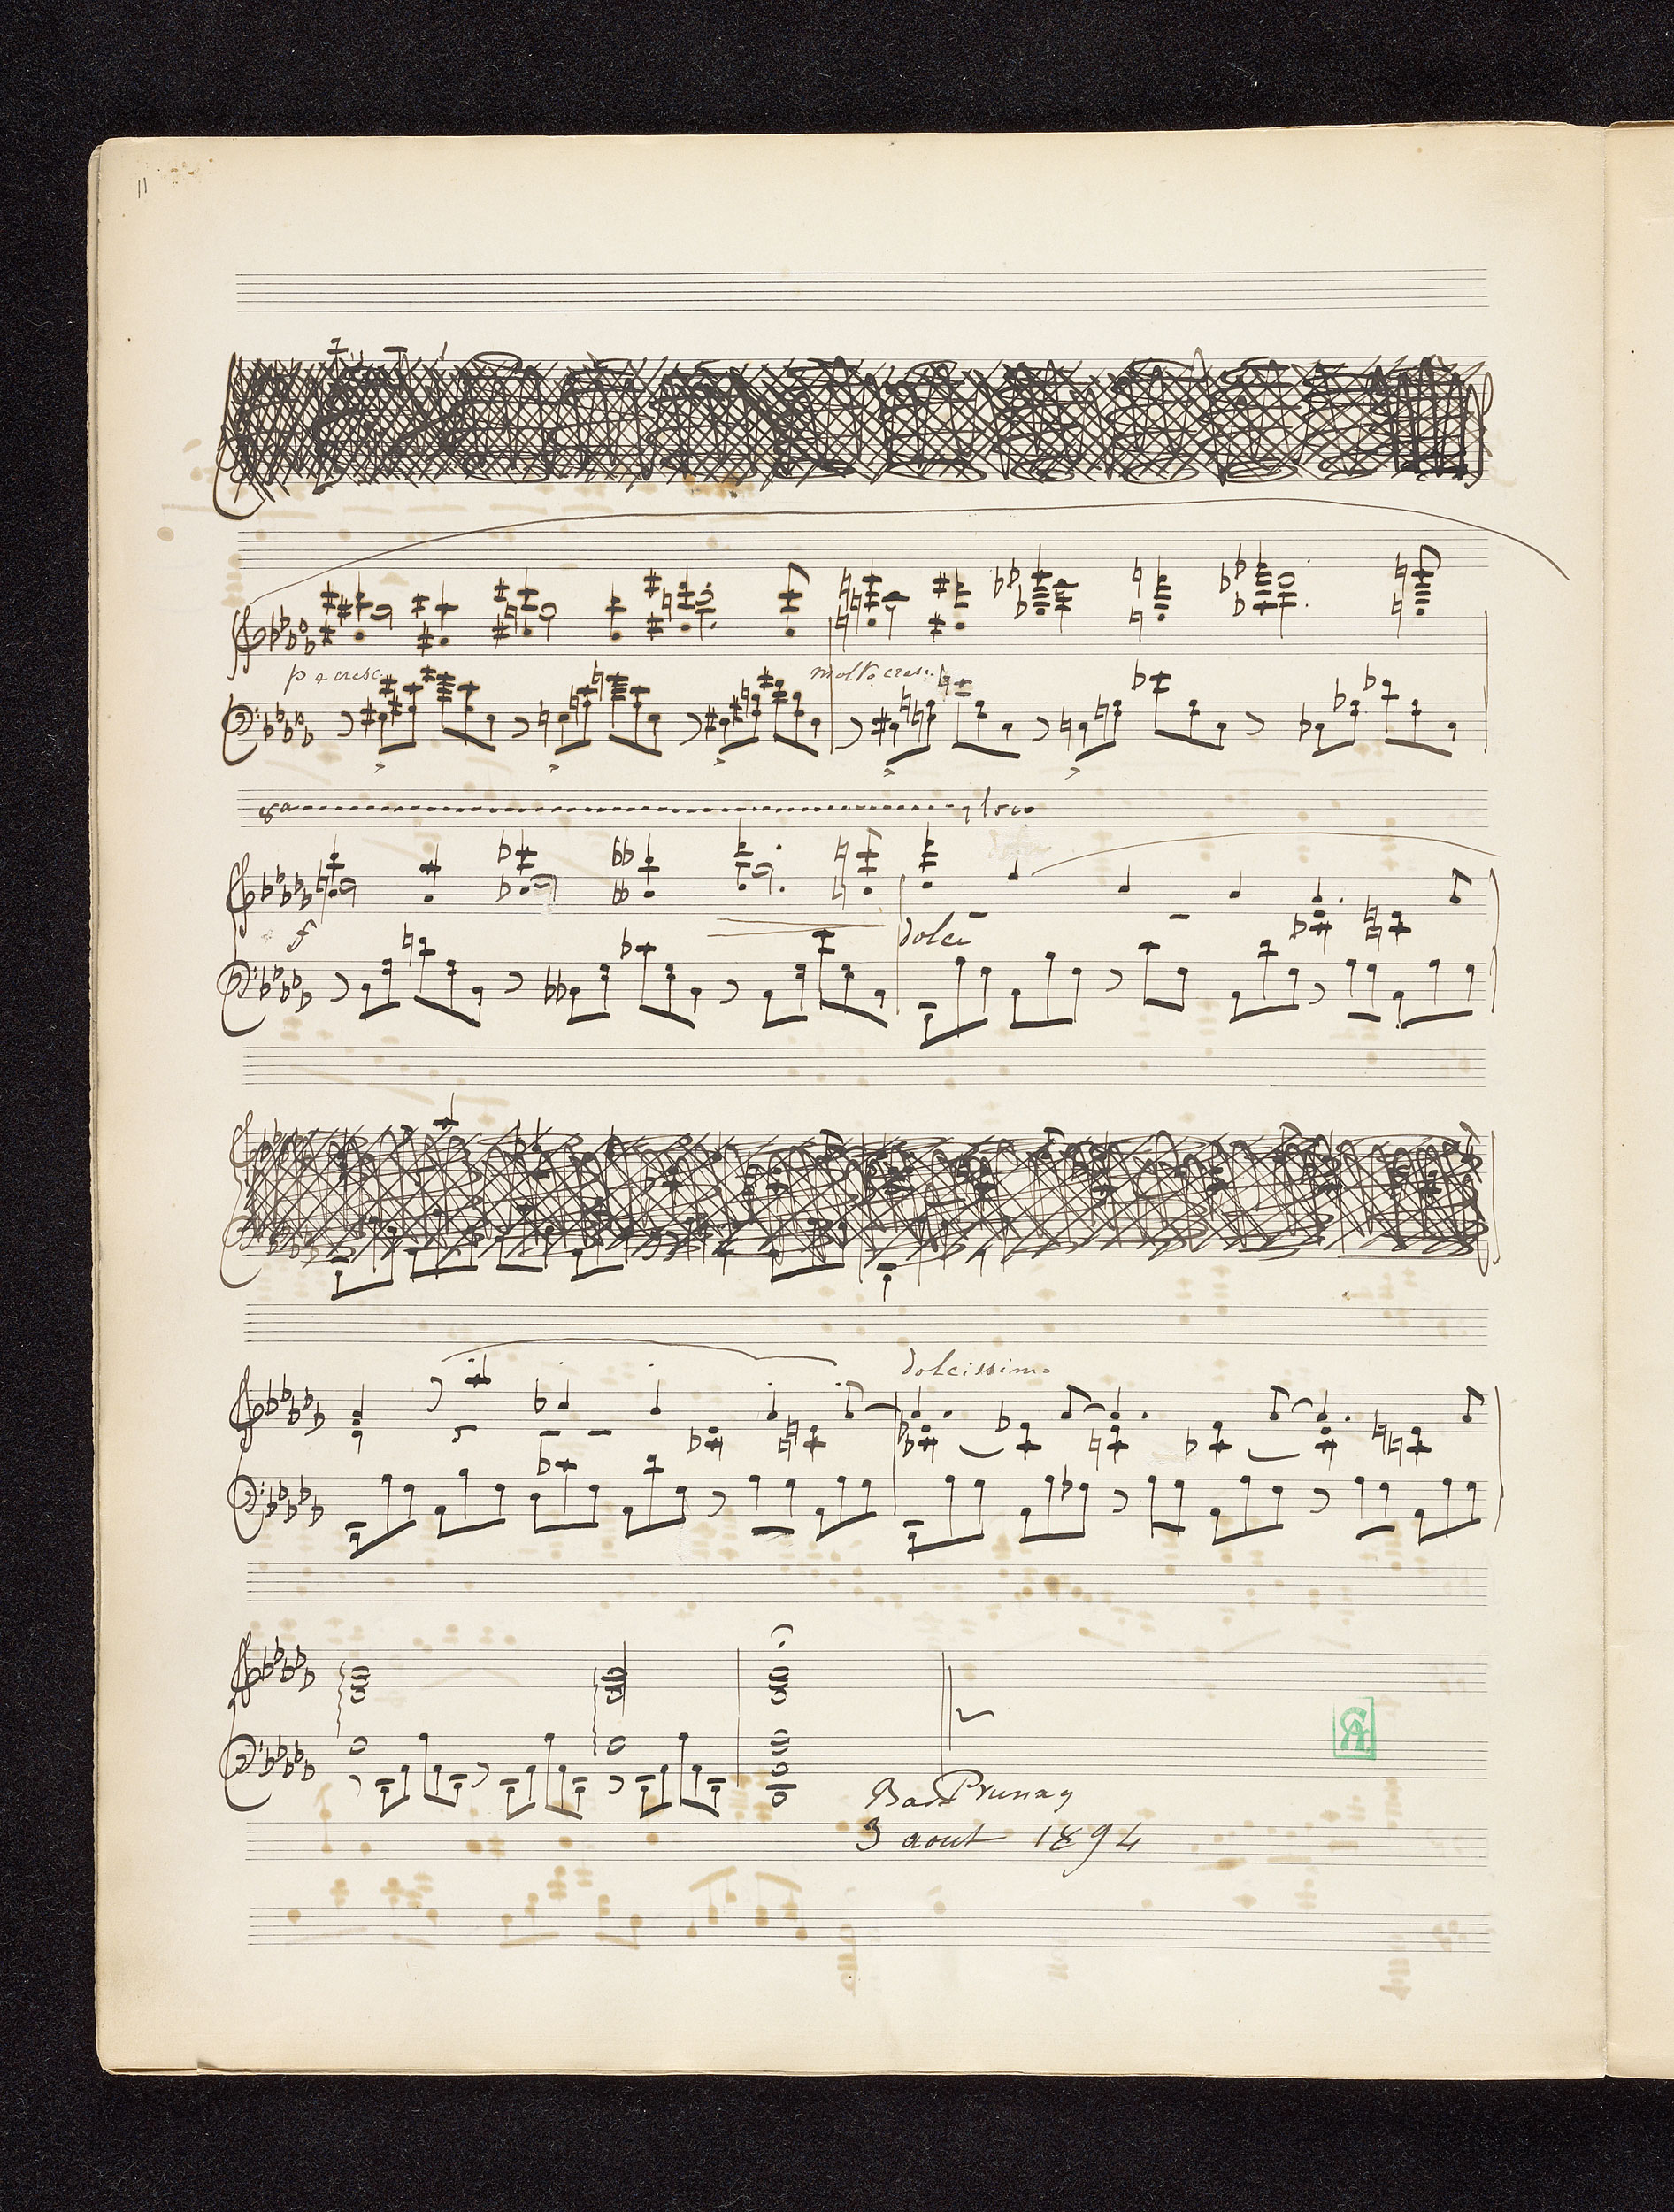 11
p e cresc.
molto cresc.
8a loco
f
dolce
dolcissimo
Bas Prunay
3 aout 1894